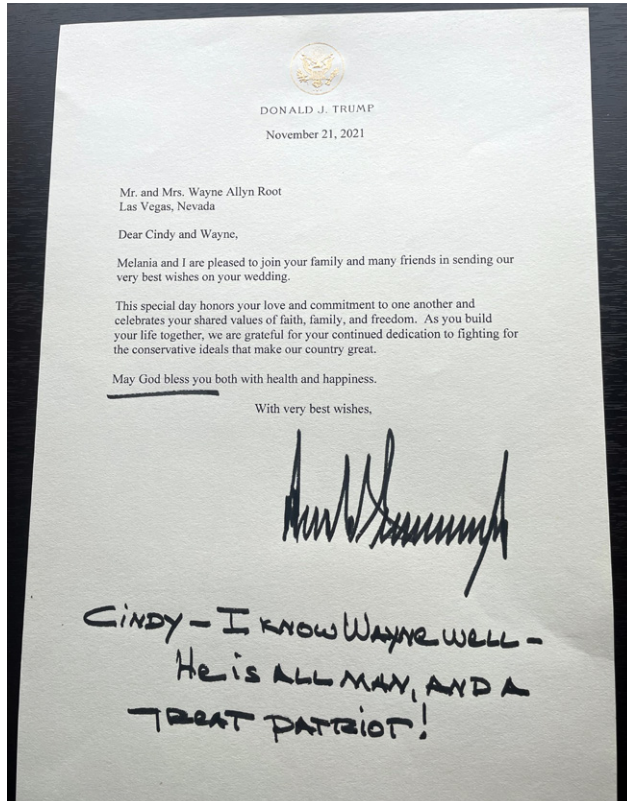 DONALD J. TRUMP
November 21, 2021
Mr. and Mrs. Wayne Allyn Root
Las Vegas, Nevada
Dear Cindy and Wayne,
Melania and I are pleased to join your family and many friends in sending our
very best wishes on your wedding.
This special day honors your love and commitment to one another and
celebrates your shared values of faith, family, and freedom.  As you build
your life together, we are grateful for your continued dedication to fighting for
the conservative ideals that make our country great.
May God bless you both with health and happiness.
With very best wishes,
CINDY – I KNOW WAYNE WELL –
He is ALL MAN, AND A
TREAT PATRIOT!